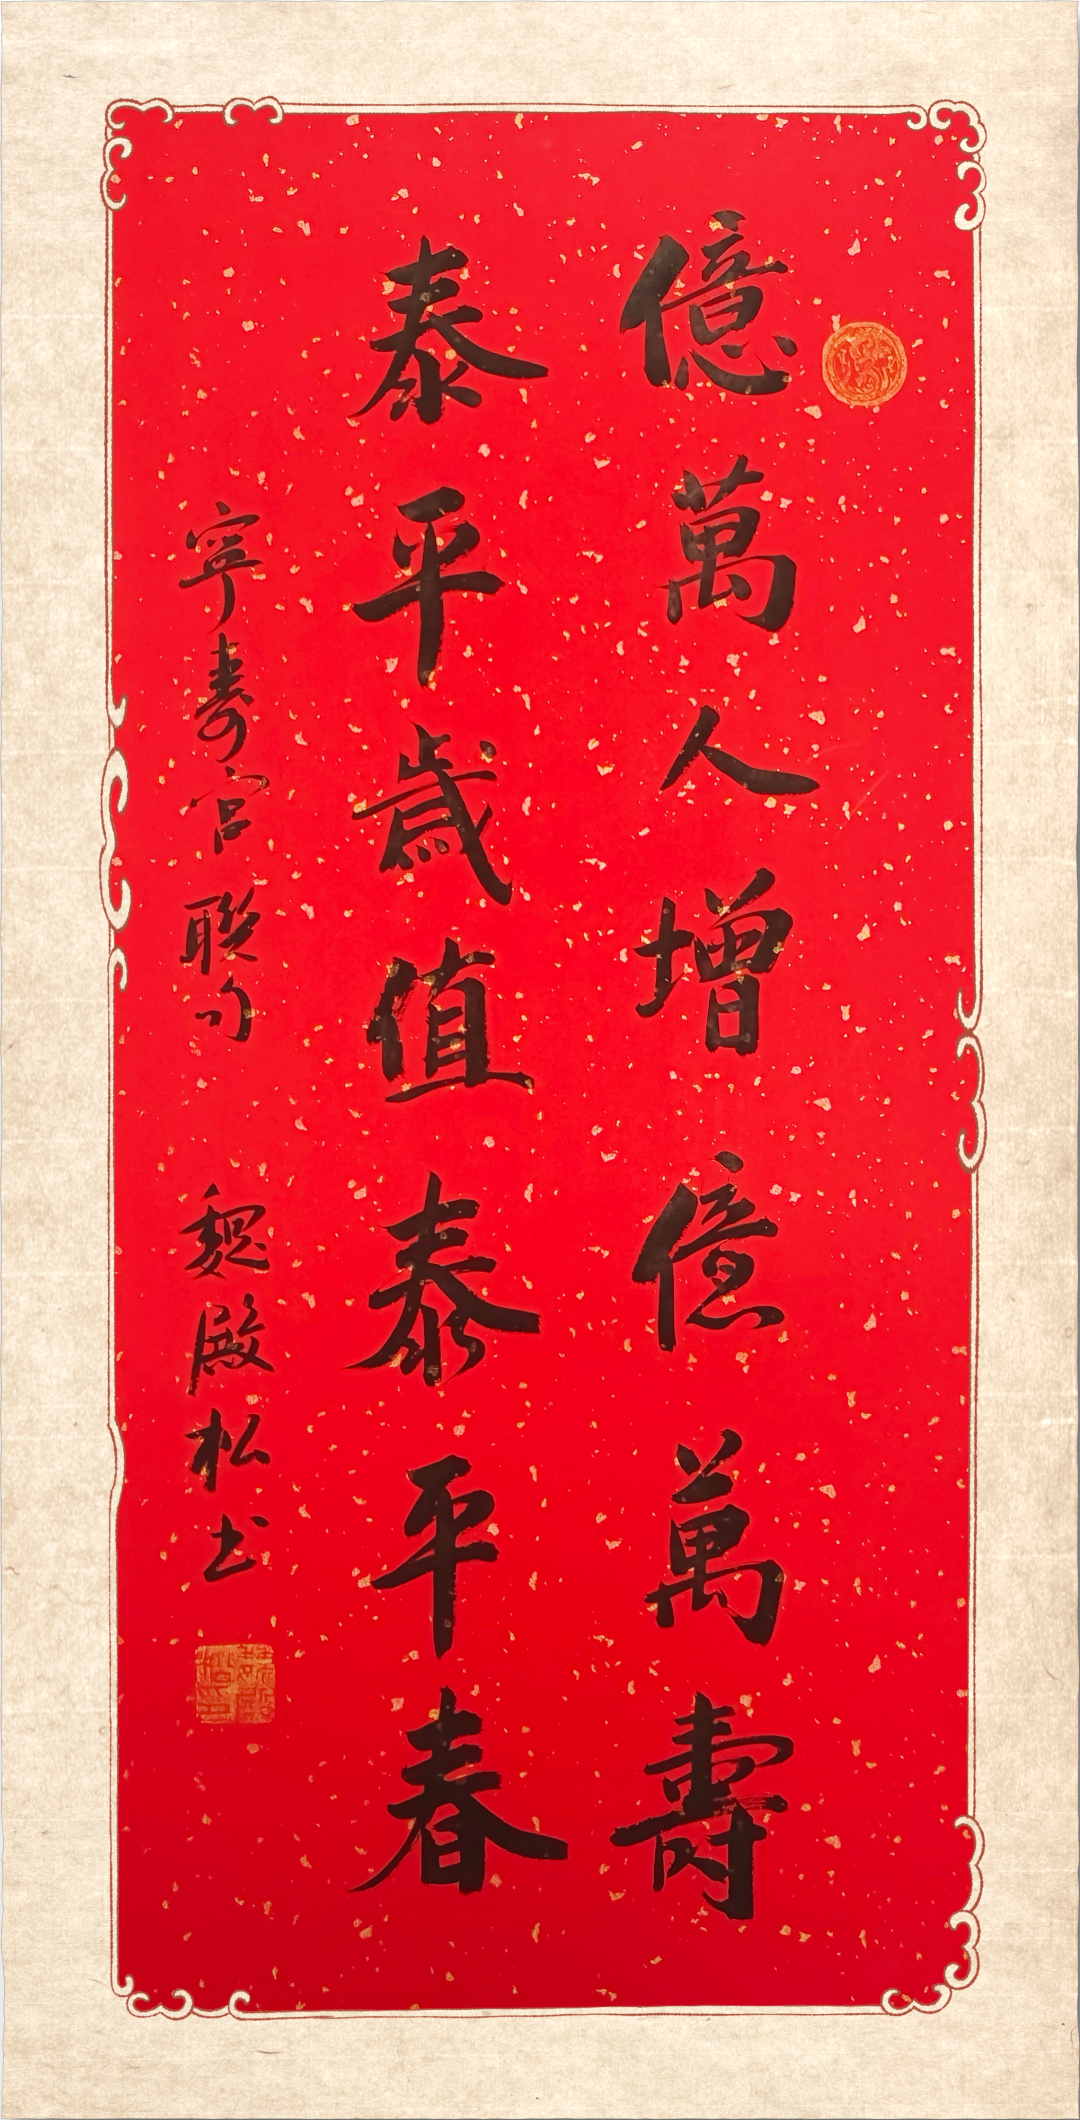 億萬人增億萬壽
泰平歲值泰平春
寧壽宮聯句 魏殿松书